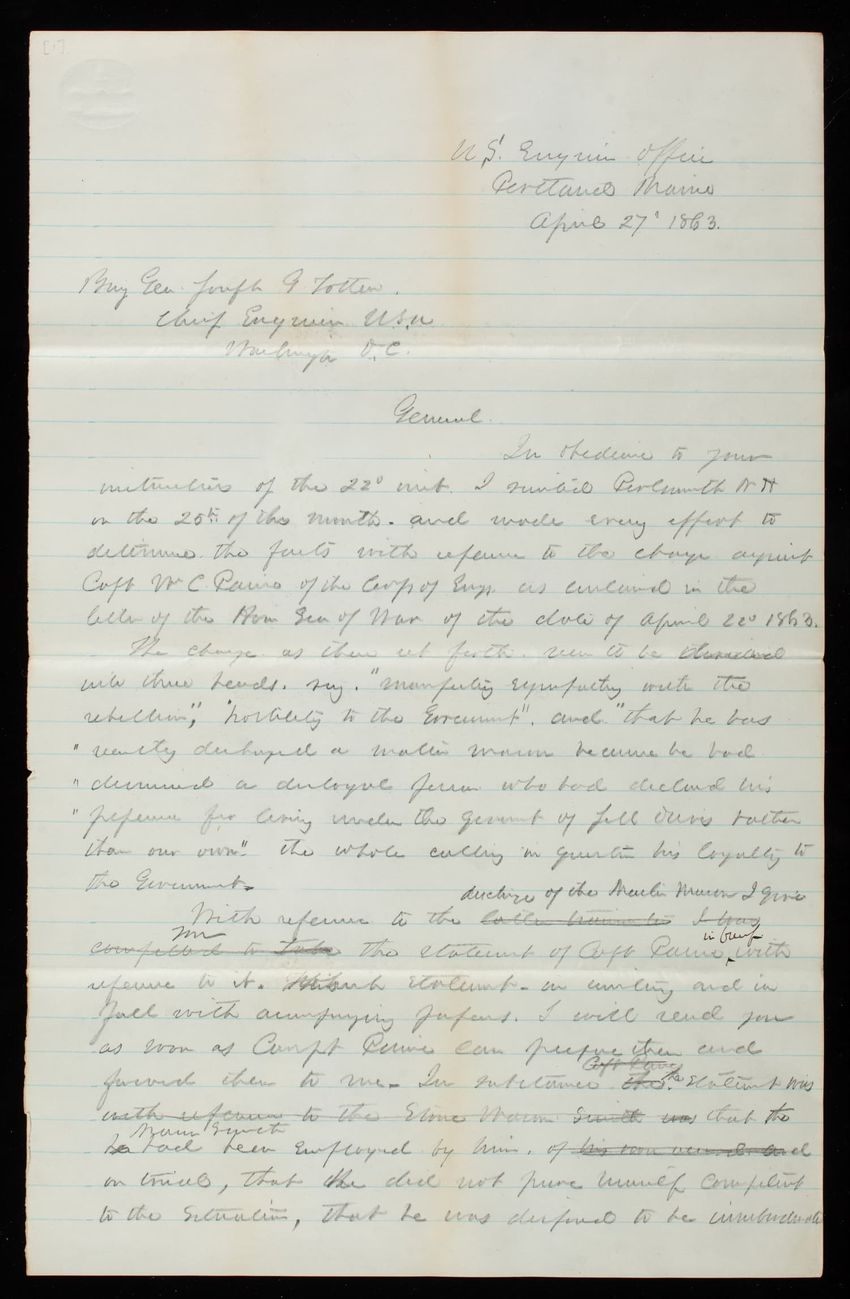 [1]
U.S. Engineer Office
Portland Maine
April 27' 1863.
Brig Gen. Joseph G Totten.
Chief Engineer U.S.A
Washingn D.C.
General.
In obedience to your
instructions of the 22d inst. I visited Portsmouth N H
on the 25th of the month. and made every effort to
determine the facts with reference to the charge against
Capt Wm C. Paine of the Corps of Engs. as contained in the
letter of the Hon Sec of War of the date of April 22d 1863.
The charge as there set forth. seem to be
into three heads. say. "manifesting sympathy with the
rebellion", "hostility to the Government". and "that he has
" recently discharged a master mason because he had
" dismissed a disloyal person who had declared his
" preference for living under the government of Jeff Davis rather
than our own". the whole calling in question his loyalty to
the Government.
discharge of the Master Mason I give
With reference to the I was
you in brief
compelled to take the statement of Capt Paine, with
reference to it. statement. in writing and in
full with accompanying papers. I will send you
as soon as Campt Paine can prepare them and
Capt Paine
forward them to me. In substance the statement was
with reference to the Stone Mason Smith was that the
Mason Smith
he had been employed by him. of his own accord and
on trial, that he did not prove himself competent
to the situation, that he was disposed to be insubordinate